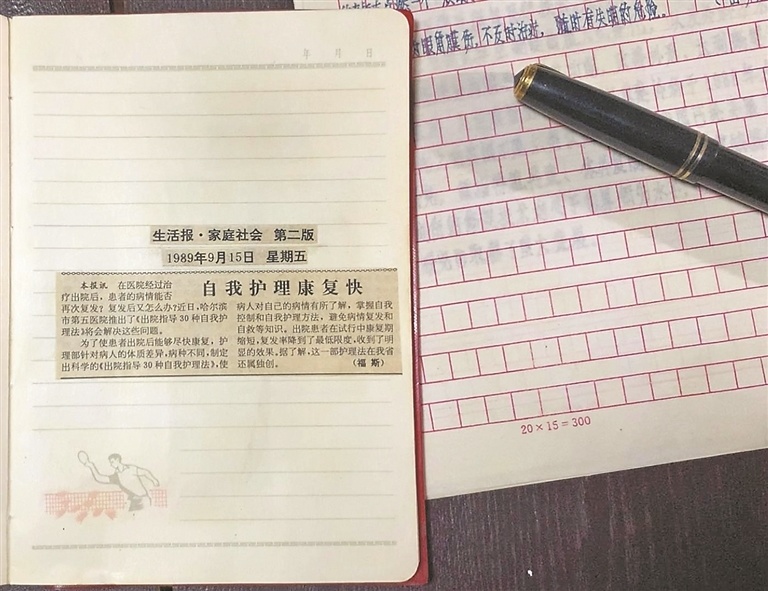 年 月 日
生活报·家庭社会 第二版
1989年9月15日 星期五
自我护理康复快
本报讯 在医院经过治
疗出院后，患者的病情能否
再次复发？复发后又怎么办？近日，哈尔滨
市第五医院推出了《出院指导30种自我护
理法》将会解决这些问题。
为了使患者出院后能够尽快康复，护
理部针对病人的体质差异，病种不同，制定
出科学的《出院指导30种自我护理法》，使
病人对自己的病情有所了解，掌握自我
控制和自我护理方法，避免病情复发和
自救等知识。出院患者在试行中康复期
缩短，复发率降到了最低限度，收到了明
显的效果。据了解，这一部护理法在我省
还属独创。
（福斯）
眼角膜伤，不及时治疗，随时有失明的危险。
20×15＝300